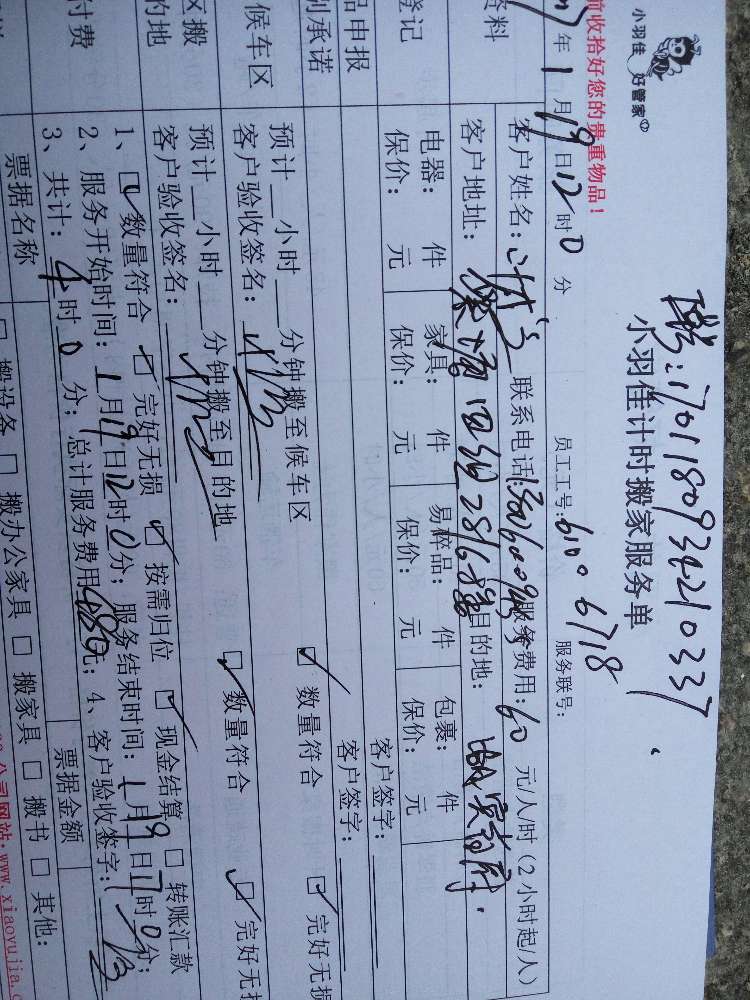 小羽佳 好管家
前收拾好您的贵重物品！
1701180934210337
小羽佳计时搬家服务单
年1月19日12时0分 员工工号：6100 6718 服务联号：
资料
客户姓名： 联系电话： 服务费用：60元/人/时（2小时起/人）
客户地址： 目的地：
登记
电器： 件 家具： 件 易碎品： 件 包裹： 件
保价： 元 保价： 元 保价： 元 保价： 元
品申报
客户签字：
别承诺
客户签字：
候车区
预计 小时 分钟搬至候车区 数量符合 完好无损
客户验收签名：
区搬
的地
预计 小时 分钟搬至目的地 数量符合 完好无损
客户验收签名：
付费
1、 数量符合 完好无损 按需归位 现金结算 转账汇款
2、服务开始时间：1月19日12时0分；服务结束时间：1月19日17时0分；
3、共计：4时0分；总计服务费用480元；4、客户验收签字：
票据名称 票据金额
搬设备 搬办公家具 搬家具 搬书 其他：
公司网站：www.xiaoyujia.c